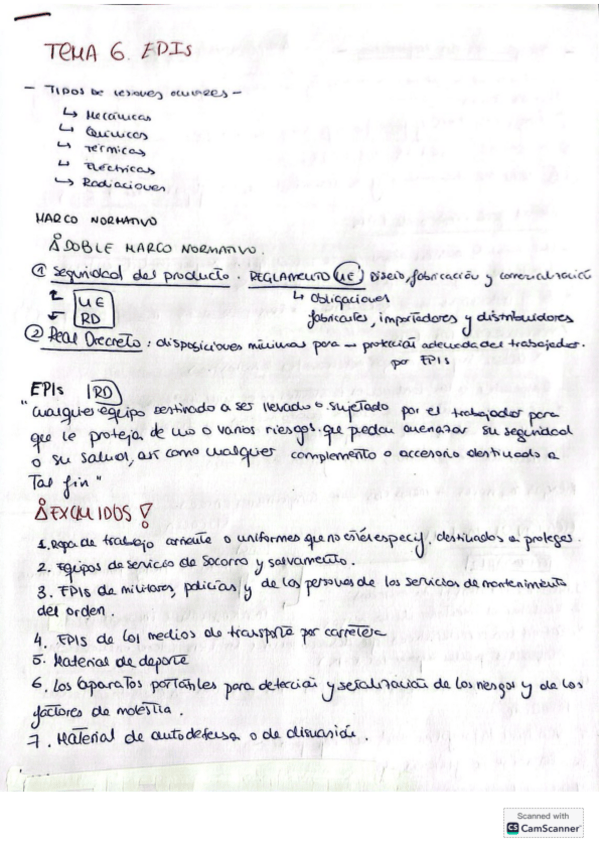 TEMA 6. EPIs
- TIPOS DE lesiones oculares -
↳ Mecánicas
↳ Químicas
↳ Térmicas
↳ Eléctricas
↳ Radiaciones
MARCO NORMATIVO
DOBLE MARCO NORMATIVO.
① Seguridad del producto. REGLAMENTO (UE) Diseño, fabricación y comercialización
↳ Obligaciones
UE
RD
fabricantes, importadores y distribuidores
② Real Decreto: disposiciones mínimas para — protección adecuada del trabajador.
por EPIs
EPIs RD
"Cualquier equipo destinado a ser llevado o sujetado por el trabajador para
que le proteja de uno o varios riesgos que puedan amenazar su seguridad
o su salud, así como cualquier complemento o accesorio destinado a
Tal fin"
EXCLUIDOS!
1. ropa de trabajo corriente o uniformes que no estén especif. destinados a proteger.
2. Equipos de servicio de Socorro y salvamento.
3. EPIs de militares, policías y de las personas de los servicios de mantenimiento
del orden.
4. EPIs de los medios de transporte por carretera
5. Material de deporte
6. Los aparatos portátiles para detección y señalización de los riesgos y de los
factores de molestia.
7. Material de autodefensa o de disuasión.
Scanned with
CS CamScanner